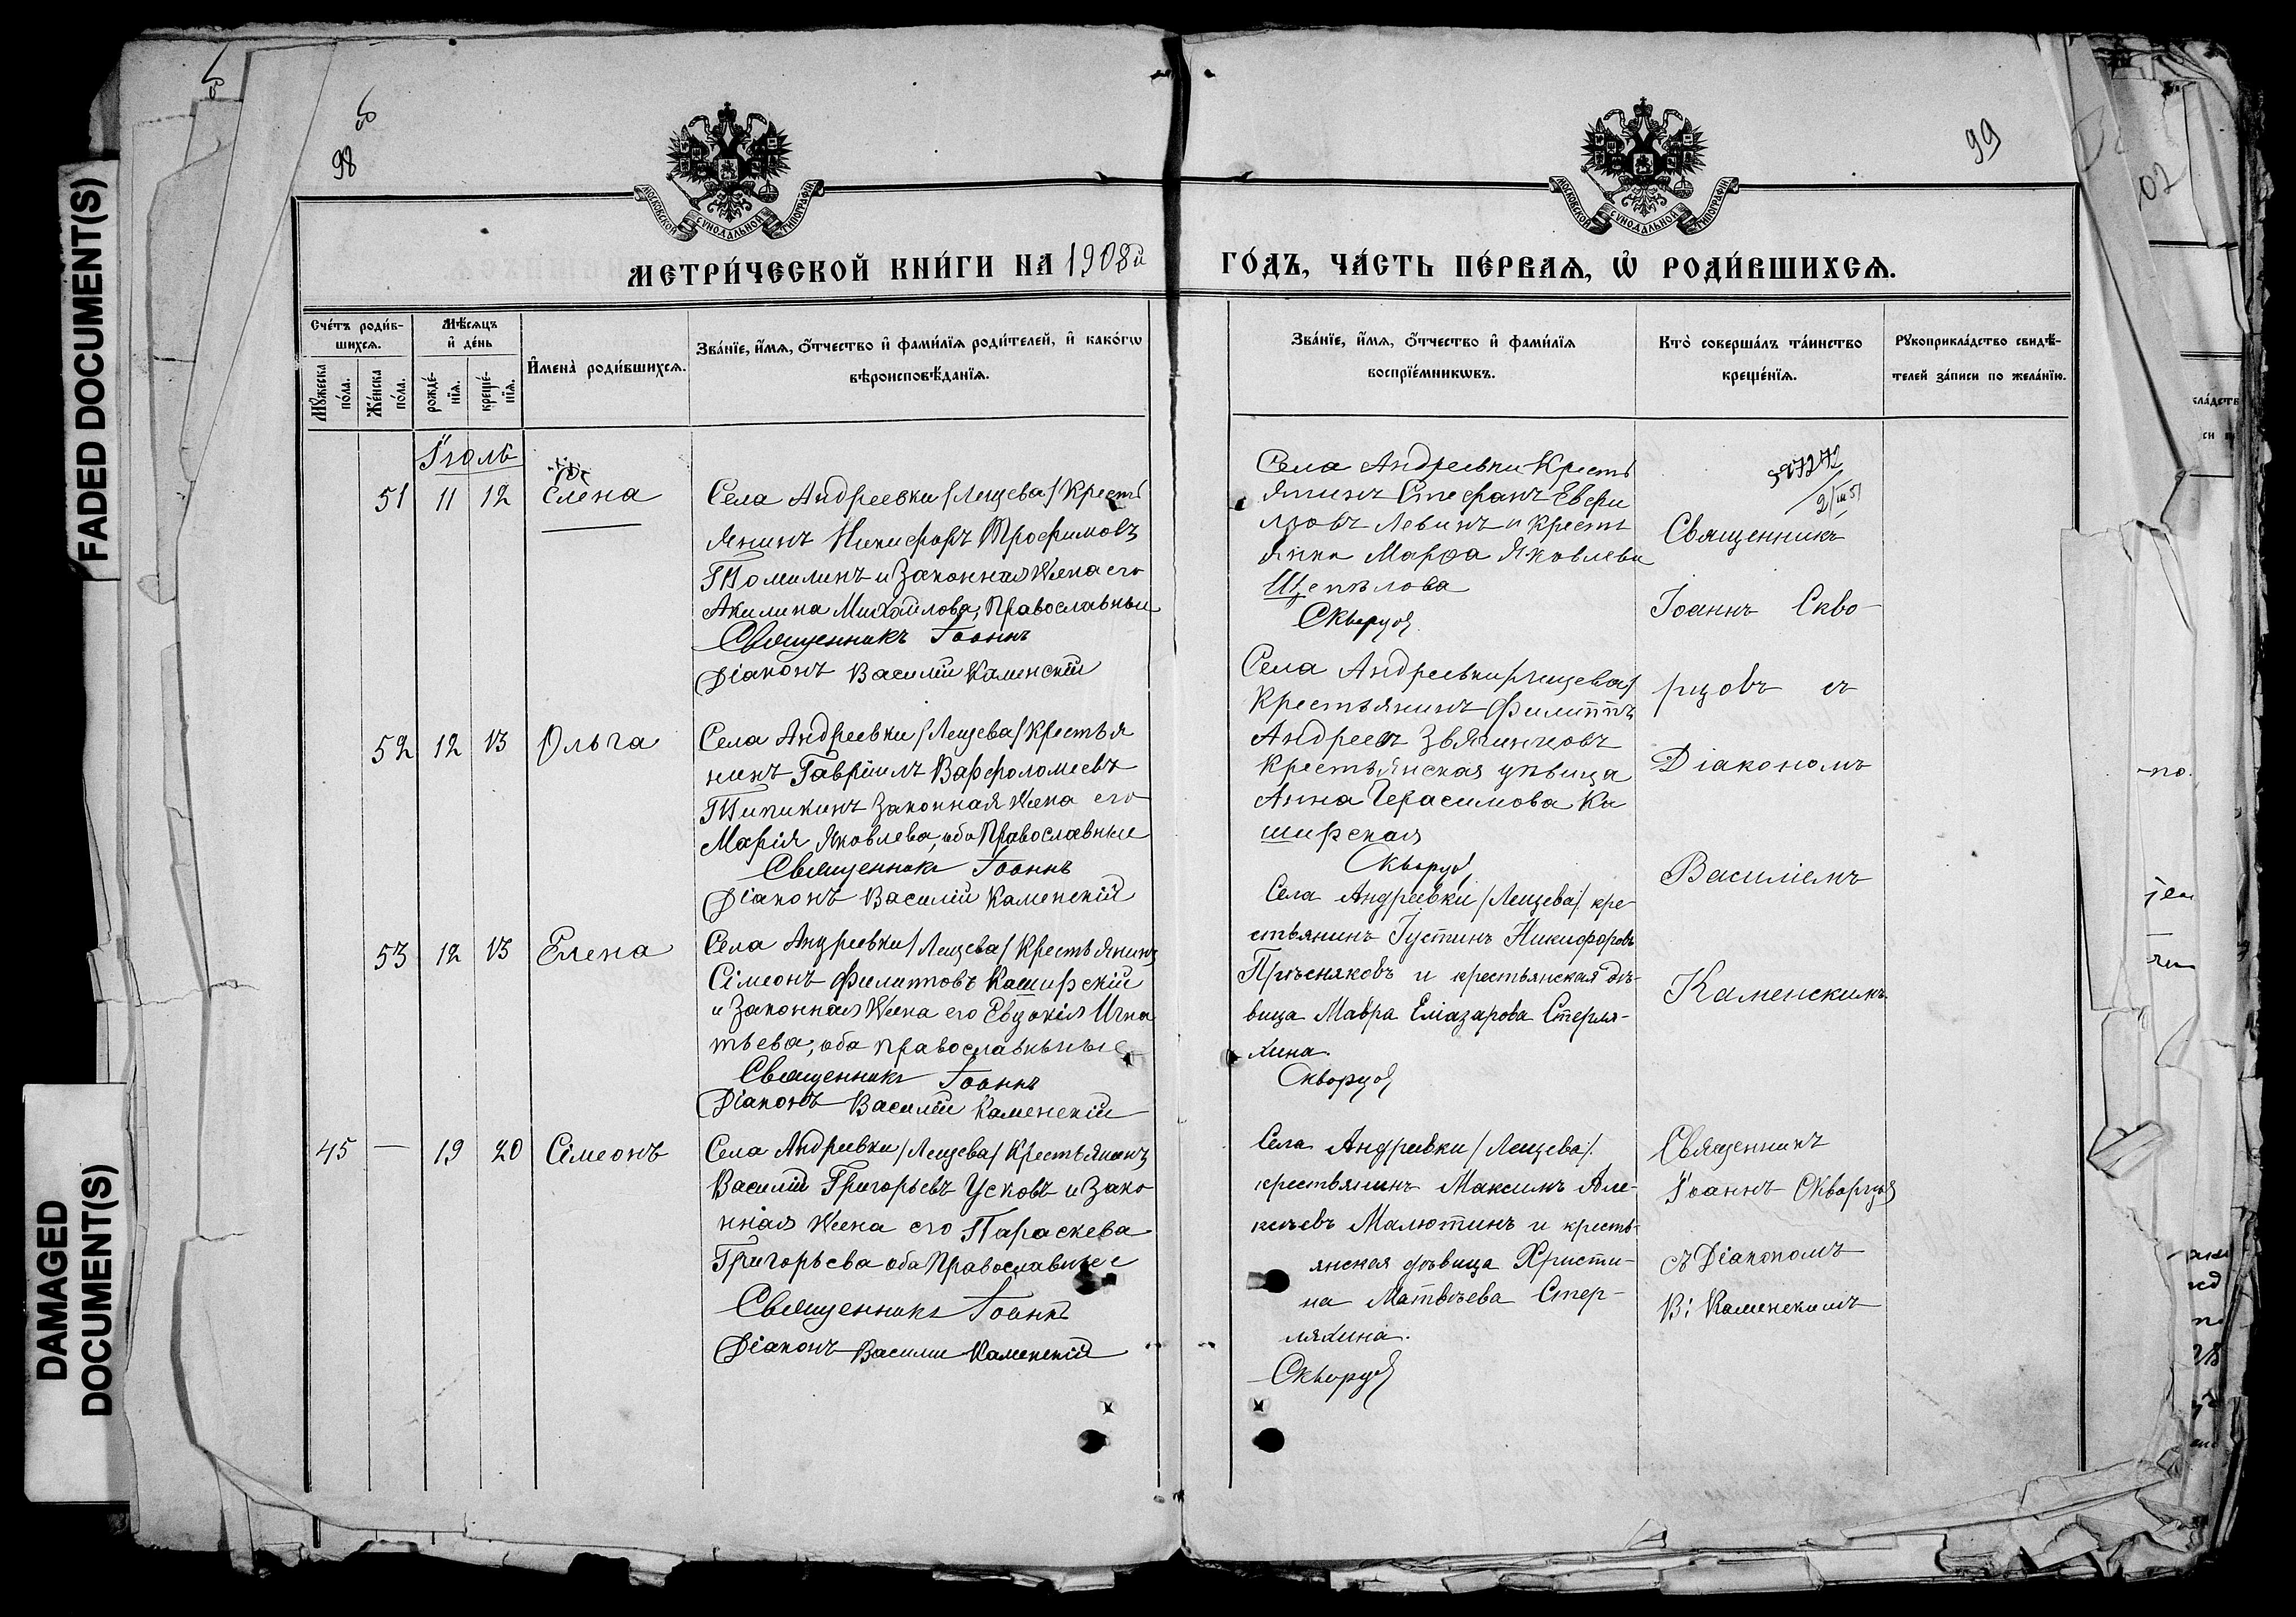 FADED DOCUMENT(S)
DAMAGED
DOCUMENT(S)
98
99
МОСКОВСКОЙ СѴНОДАЛЬНОЙ ТИПОГРАФІИ
МОСКОВСКОЙ СѴНОДАЛЬНОЙ ТИПОГРАФІИ
МЕТРИ́ЧЕСКОЙ КНИ́ГИ НА 1908й
ГО́ДЪ, ЧА́СТЬ ПЕ́РВАѦ, Ѡ҆ РОДИ́ВШИХСѦ.
Сче́тъ роди́в-
шихсѧ.
Мѹ́жеска
по́ла.
Же́нска
по́ла.
Мѣ́сѧцъ
и҆ де́нь
рожде́-
нїѧ.
креще́-
нїѧ.
И҆мена̀ роди́вшихсѧ.
Зва́нїе, и҆́мѧ, ѻ҆́тчество и҆ фами́лїѧ роди́телей, и҆ како́гѡ
вѣроисповѣ́данїѧ.
Зва́нїе, и҆́мѧ, ѻ҆́тчество и҆ фами́лїѧ
воспрїе́мникѡвъ.
Кто̀ соверша́лъ та́инство
креще́нїѧ.
Рѹкоприкла́дство свидѣ́-
телей за́писи по жела́нїю.
Іюль
51 11 12 Елена
Села Андреевки /Лещева/ Кресть
янинъ Никифоръ Трофимовъ
Томилинъ и Законная Жена его
Акилина Михайлова, Православные
Священникъ Іоаннъ
Діаконъ Василій Каменскій
Села Андреевки Кресть
янинъ Стефанъ Евфи
мовъ Левинъ и Кресть
янка Марѳа Яковлева
Щепилова
Скворцов
Священникъ
Іоаннъ Скво-
рцовъ съ
Діакономъ
Василіемъ
Каменскимъ.
52 12 13 Ольга
Села Андреевки /Лещева/ Крестья
нинъ Гавріилъ Варфоломеевъ
Типикинъ Законная Жена его
Марія Яковлева, оба Православные
Священникъ Іоаннъ
Діаконъ Василій Каменскій
Села Андреевки /Лещева/
Крестьянинъ Филиппъ
Андреевъ Звягинцовъ
Крестьянская дѣвица
Анна Герасимова Ка
ширская
Скворцов
53 12 13 Елена
Села Андреевки /Лещева/ Крестьянинъ
Сімеонъ Филипповъ Каширскій
и Законная Жена его Евдокія Игна
тьева, оба православныные
Священникъ Іоаннъ
Діаконъ Василій Каменскій
Села Андреевки /Лещева/ кре-
стьянинъ Іустинъ Никифоровъ
Прѣсняковъ и крестьянская дѣ-
вица Мавра Еліазарова Стерля-
хина.
Скворцов
45 — 19 20 Сімеонъ
Села Андреевки /Лещева/ Крестьянинъ
Василій Григорьевъ Усковъ и Зако
нная Жена его Параскева
Григорьева оба Православные
Священникъ Іоаннъ
Діаконъ Василій Каменскій
Села Андреевки /Лещева/.
крестьянинъ Максимъ Але-
ксѣевъ Малютинъ и кресть-
янская дѣвица Христи-
на Матвѣева Стер-
ляхина.
Скворцов
Священникъ
Іоаннъ Скворцов
съ Діакономъ
В: Каменскимъ